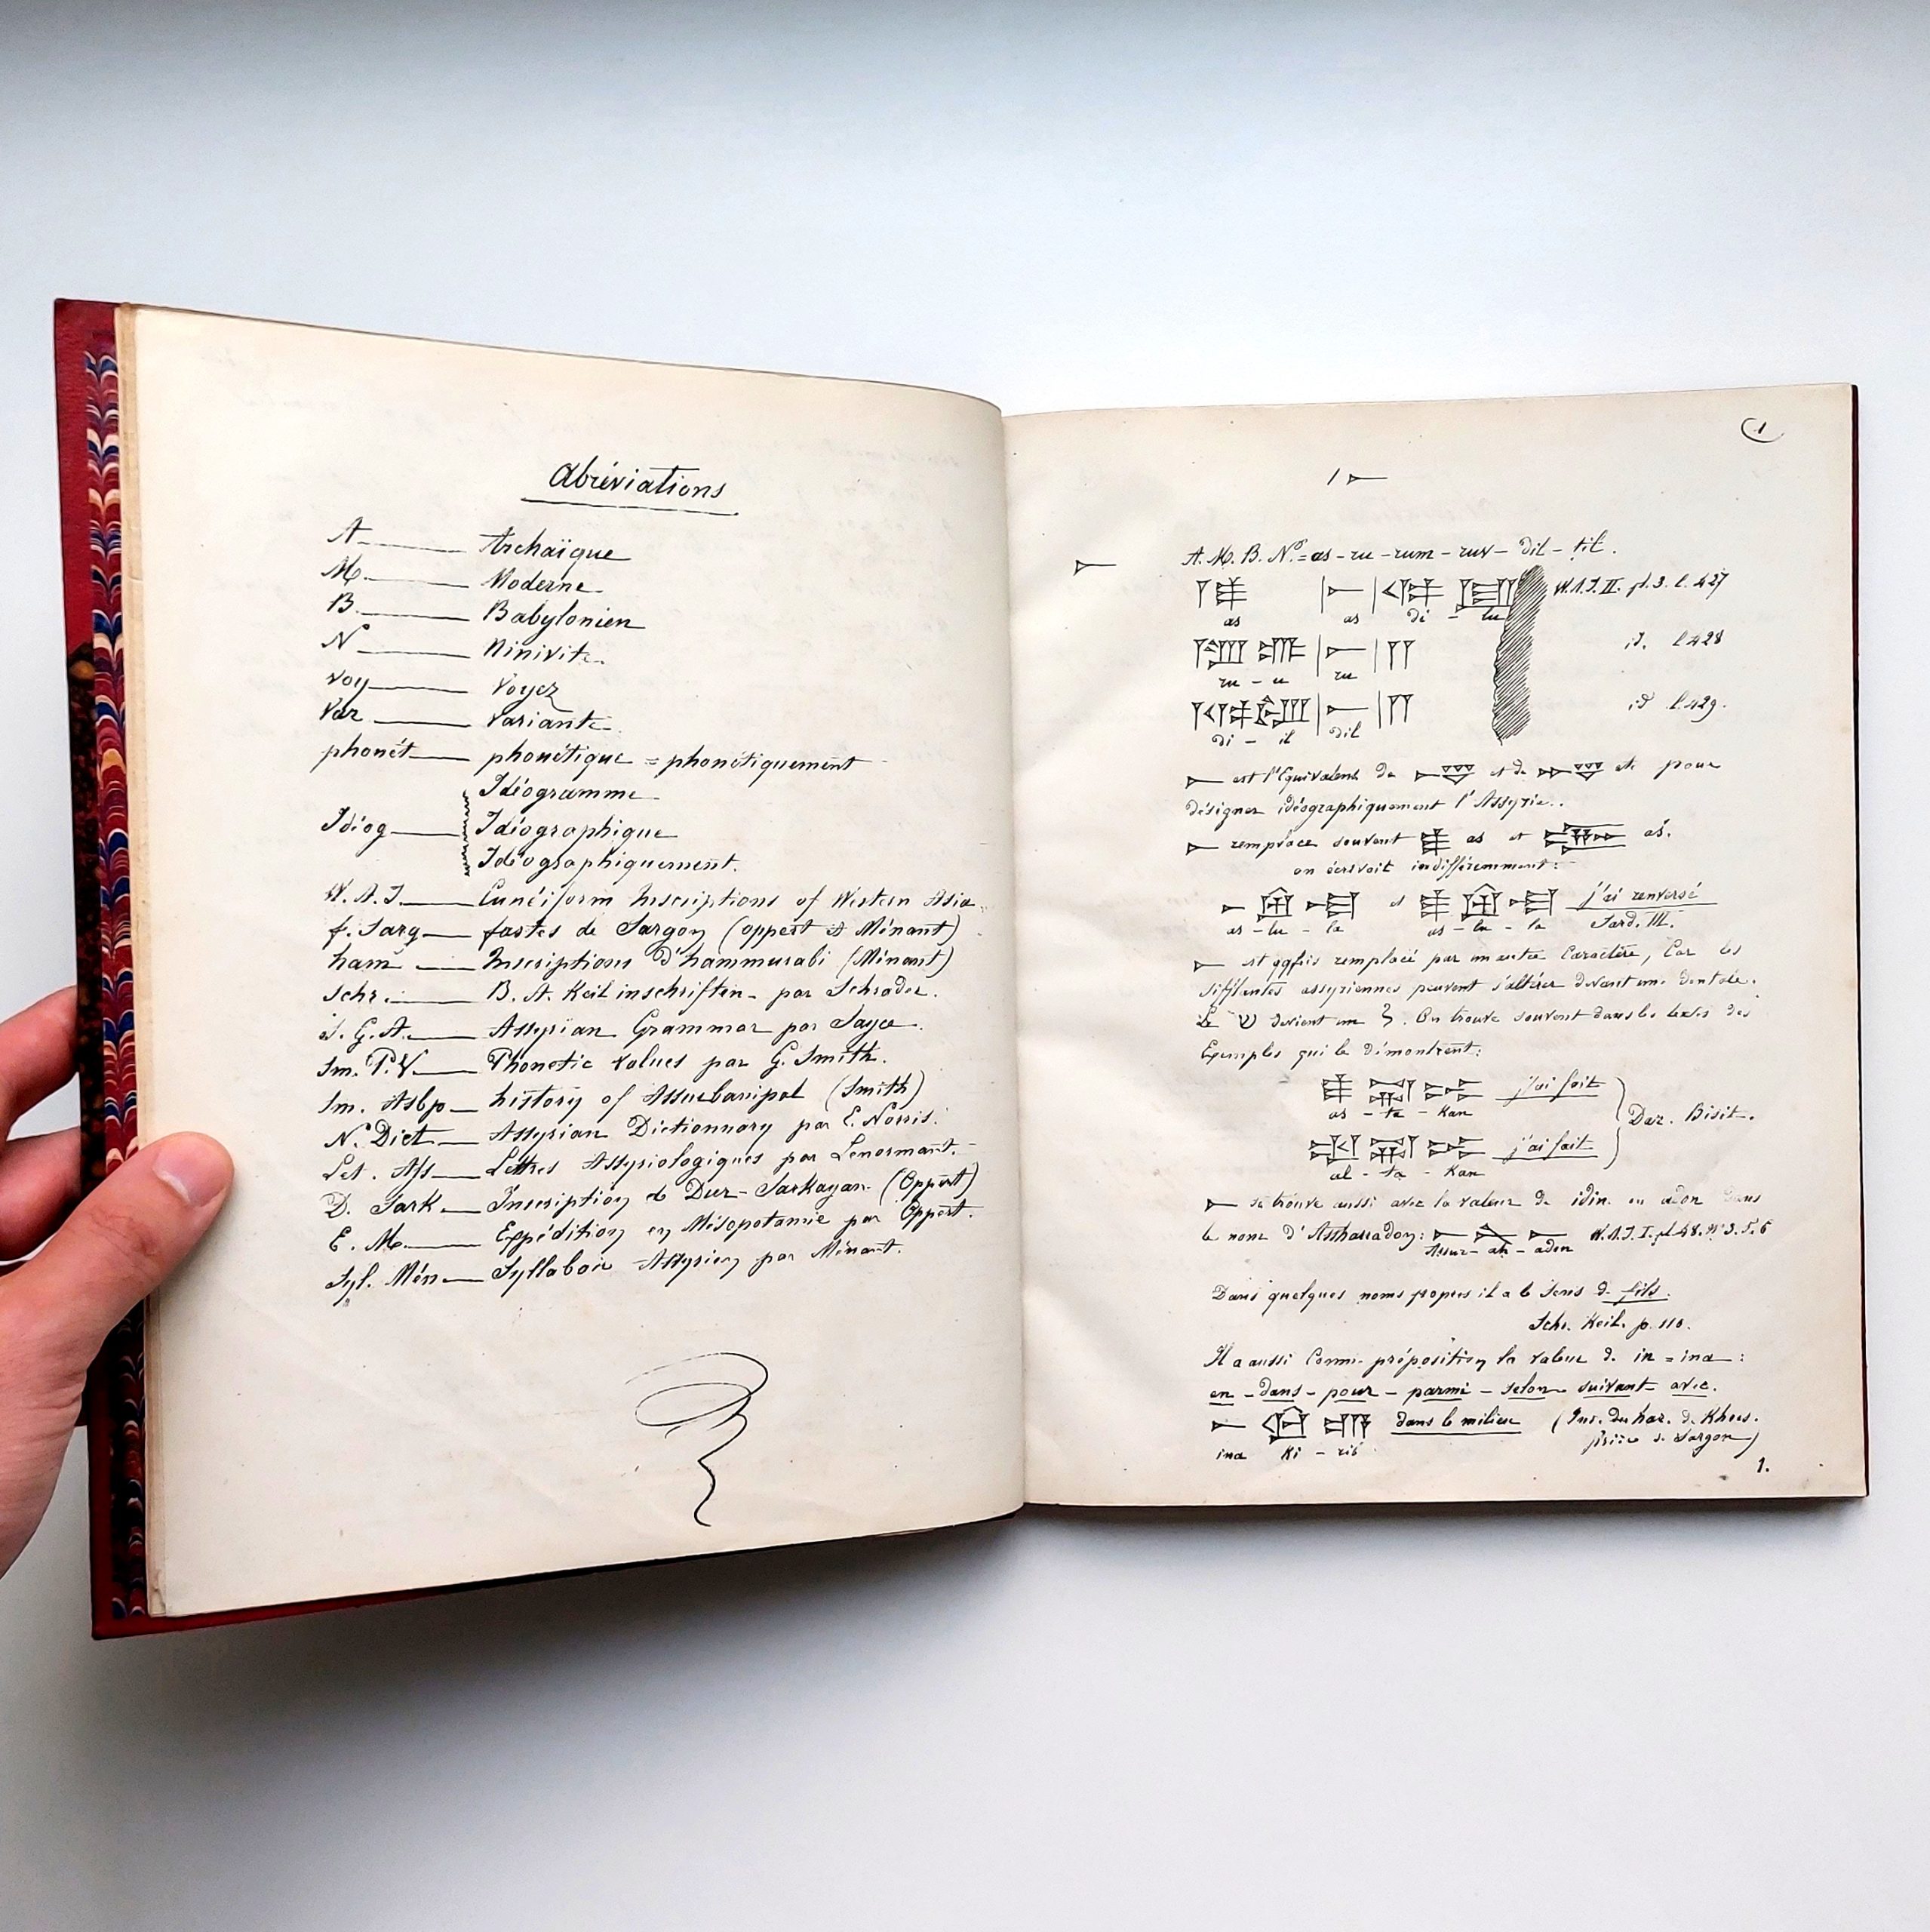 Abréviations
A. Archaïque
M. Moderne
B. Babylonien
N. Ninivite
Voy Voyez
Var Variante
phonét phonétique = phonétiquement
Idéogramme
Idéog Idéographique
Idéographiquement.
W. A. I. Cunéiform Inscriptions of Western Asia
f. Sarg fastes de Sargon (Oppert et Ménant)
ham Inscriptions d'hammurabi (Ménant)
Schr. B. A. Keil inschriften - par Schrader.
S. G. A. Assyrian Grammar par Sayce.
Sm. P. V. Phonetic values par G. Smith.
Sm. Asbp history of Assurbanipal (Smith)
N. Dict Assyrian Dictionnary par E. Norris.
Let. Ass Lettres Assyriologiques par Lenormant.
D. Sark. Inscription de Dur-Sarkayan (Oppert)
E. M. Expédition en Mésopotamie par Oppert.
Syl. Mén Syllabaire Assyrien par Ménant.
1
1 𒀸
𒀸 A. M. B. N. = as - ru - rum - ruv - dil - til.
W.A.I. II. pl. 3. l. 427
as as di - lu
id. l. 428
ru - u ru
id l. 429.
di - il dil
𒀸 est l'Equivalent de et de etc pour
désigner idéographiquement l'Assyrie..
𒀸 remplace souvent as et aś.
on écrivait indifféremment:
𒀸 et j'ai renversé
as - lu - la as - lu - la Sard. III.
𒀸 est qqfois remplacé par un autre Caractère, Car les
Sifflantes assyriennes peuvent s'altérer devant une dentale.
Le ש devient un ל. On trouve souvent dans les textes des
Exemples qui le démontrent:
j'ai fait
as - ta - kan
Dar. Bisit.
j'ai fait
al - ta - kan
𒀸 se trouve aussi avec la valeur de idin ou adon dans
le nom d'Assharadon: W.A.I. I. pl. 48. N° 3. 5. 6
Assur - ah - adin
Dans quelques noms propres il a le sens de fils.
Schr. Keil. p. 110.
Il a aussi Comme préposition la valeur de in = ina:
en - dans - pour - parmi - selon - suivant - avec.
𒀸 dans le milieu (Ins. du har. de Khors.
ina ki - rib prière de Sargon)
1.